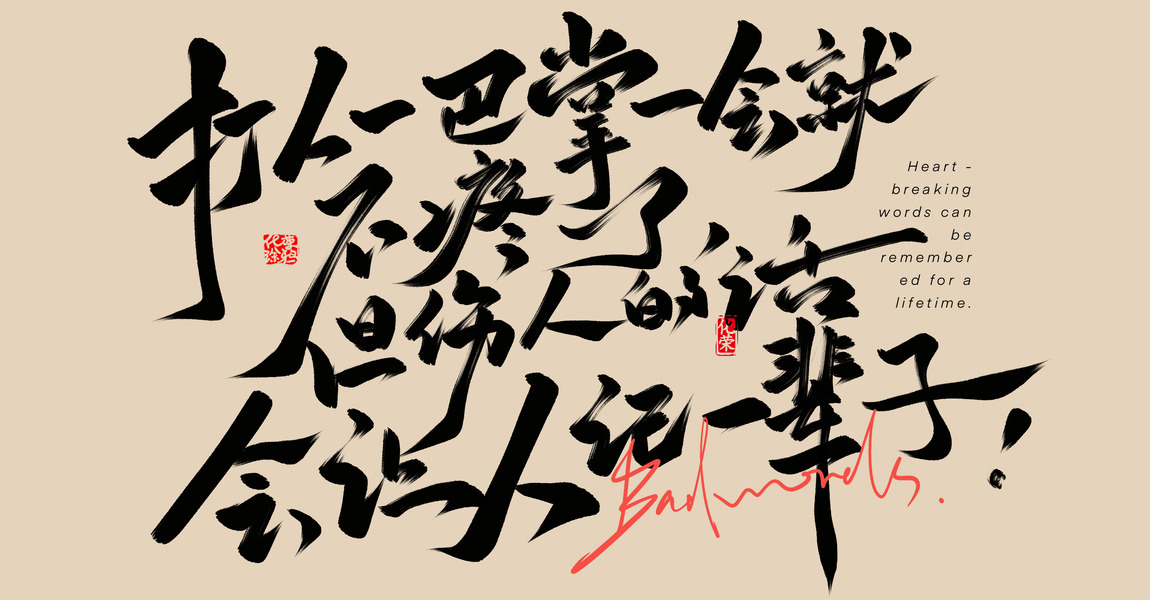 打人一巴掌一会就
不疼了
但伤人的话
会让人记一辈子！
Heart -
breaking
words can
be
remember
ed for a
lifetime.
Badwords.
化荣